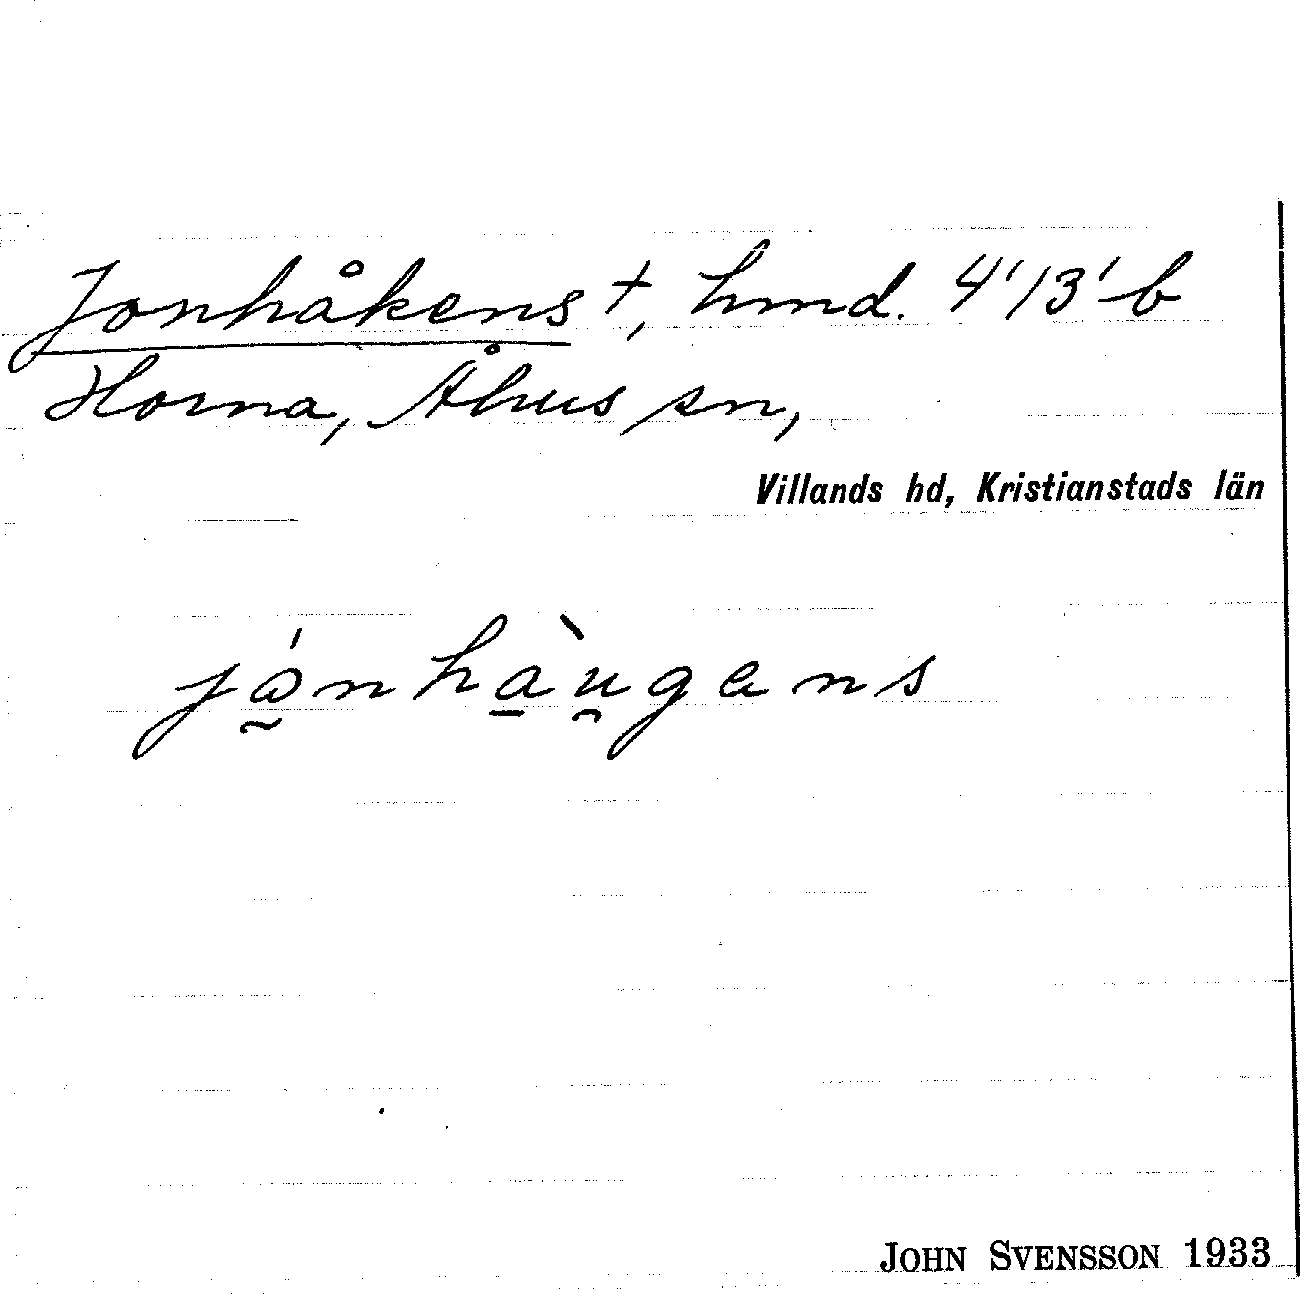 Jonhåkens †, hmd. 4'/3' b
Horna, Åhus sn,
Villands hd, Kristianstads län
jánha̱ùgens
JOHN SVENSSON 1933